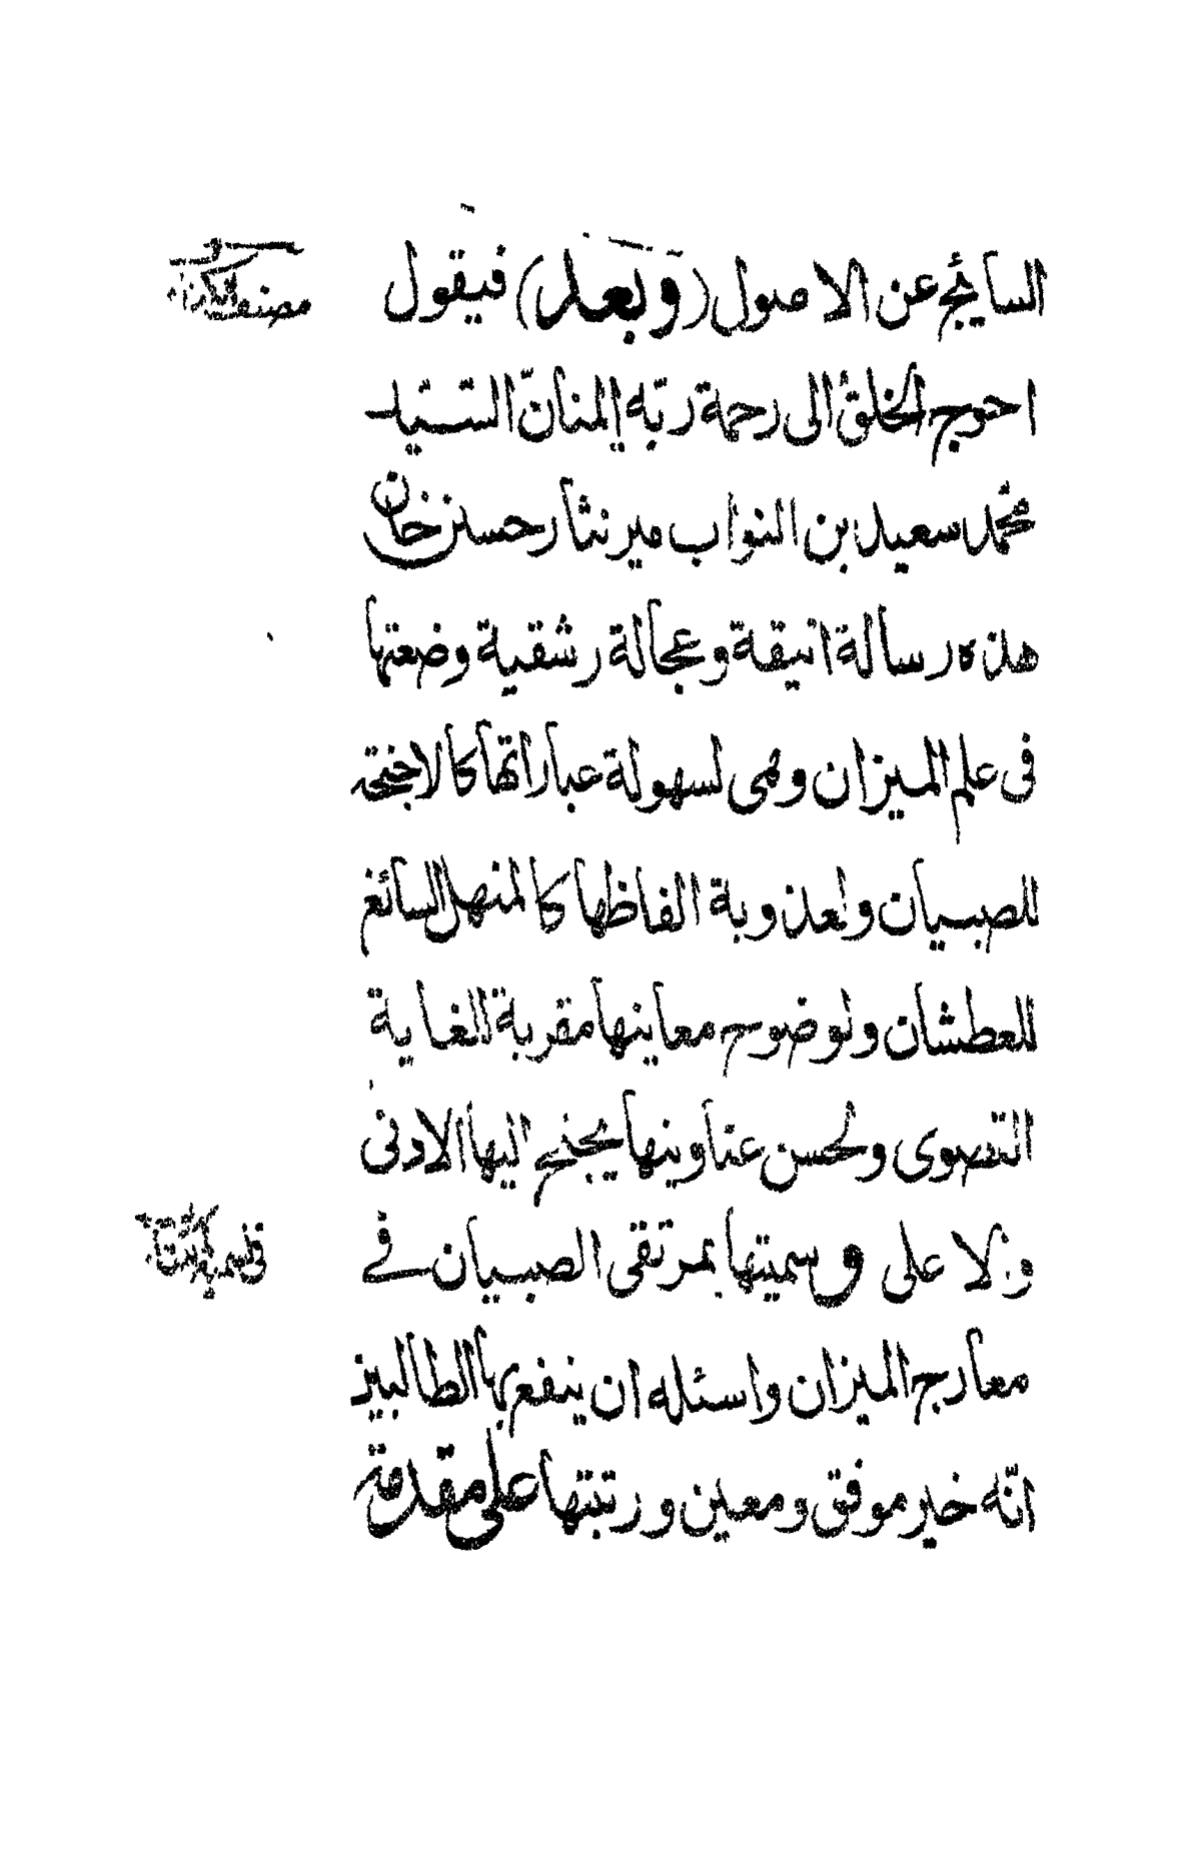 السايئج عن الاصول (وبعد) فيقول
احوج الخلق الى رحمة ربّه المنانّ السّيد
محمد سعيد بن النواب مير نثار حسن خان
هذه رسالة انيقة وعجالة رشقية وضعتها
فى علم الميزان وهى لسهولة عباراتها كالاجنحة
للصبيان ولعذوبة الفاظها كالمنهل السائغ
للعطشان ولوضوح معاينها مقربة للغاية
القصوى ولحسن عناوينها يجنح اليها الادنى
والاعلى وسميتها بمرتقى الصبيان فے
معارج الميزان واسئله ان ينفع بها الطالبين
انّه خير موفق ومعين ورتبتها على مقدمة